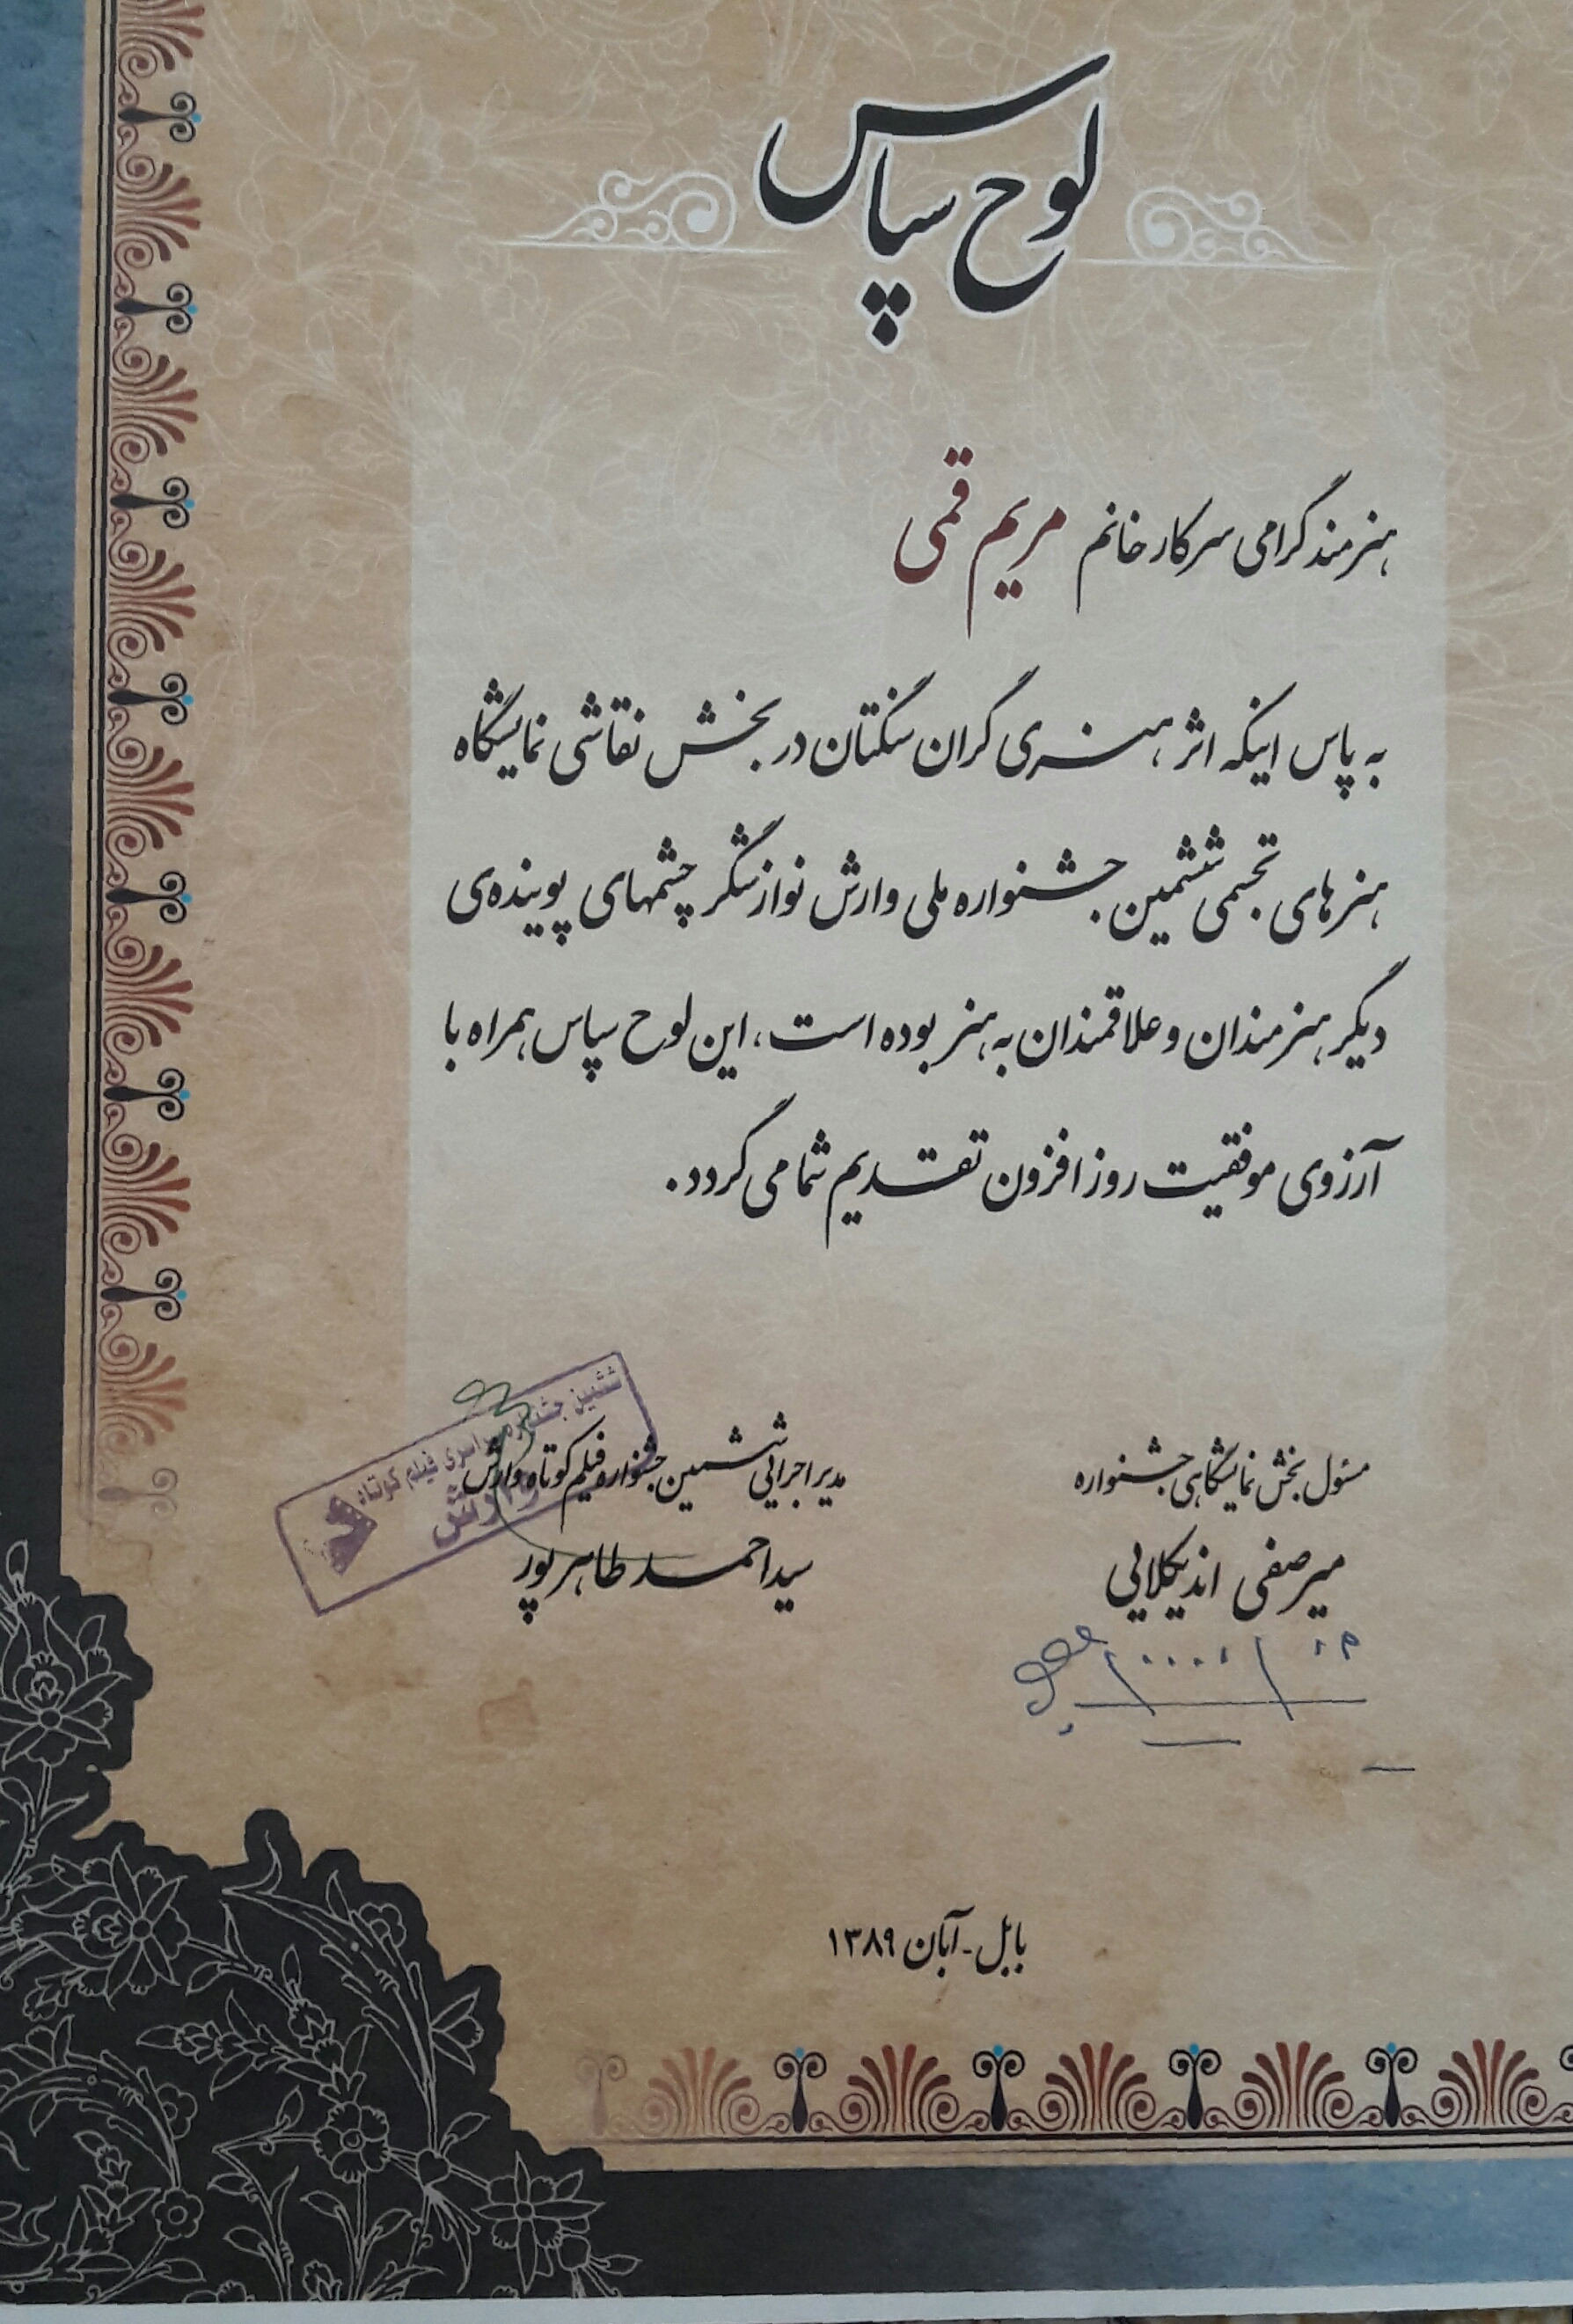 لوح سپاس
هنرمند گرامی سرکار خانم مریم قمی
به پاس اینکه اثر هنری گران سنگتان در بخش نقاشی نمایشگاه
هنرهای تجسمی ششمین جشنواره ملی وارش نوازشگر چشمهای پوینده‌ی
دیگر هنرمندان و علاقمندان به هنر بوده است، این لوح سپاس همراه با
آرزوی موفقیت روز افزون تقدیم شما می گردد.
مسئول بخش نمایشگاهی جشنواره
میرصفی اندیکلایی
مدیر اجرایی ششمین جشنواره فیلم کوتاه وارش
سید احمد طاهرپور
ششمین جشنواره سراسری فیلم کوتاه
وارش
بابل - آبان ۱۳۸۹